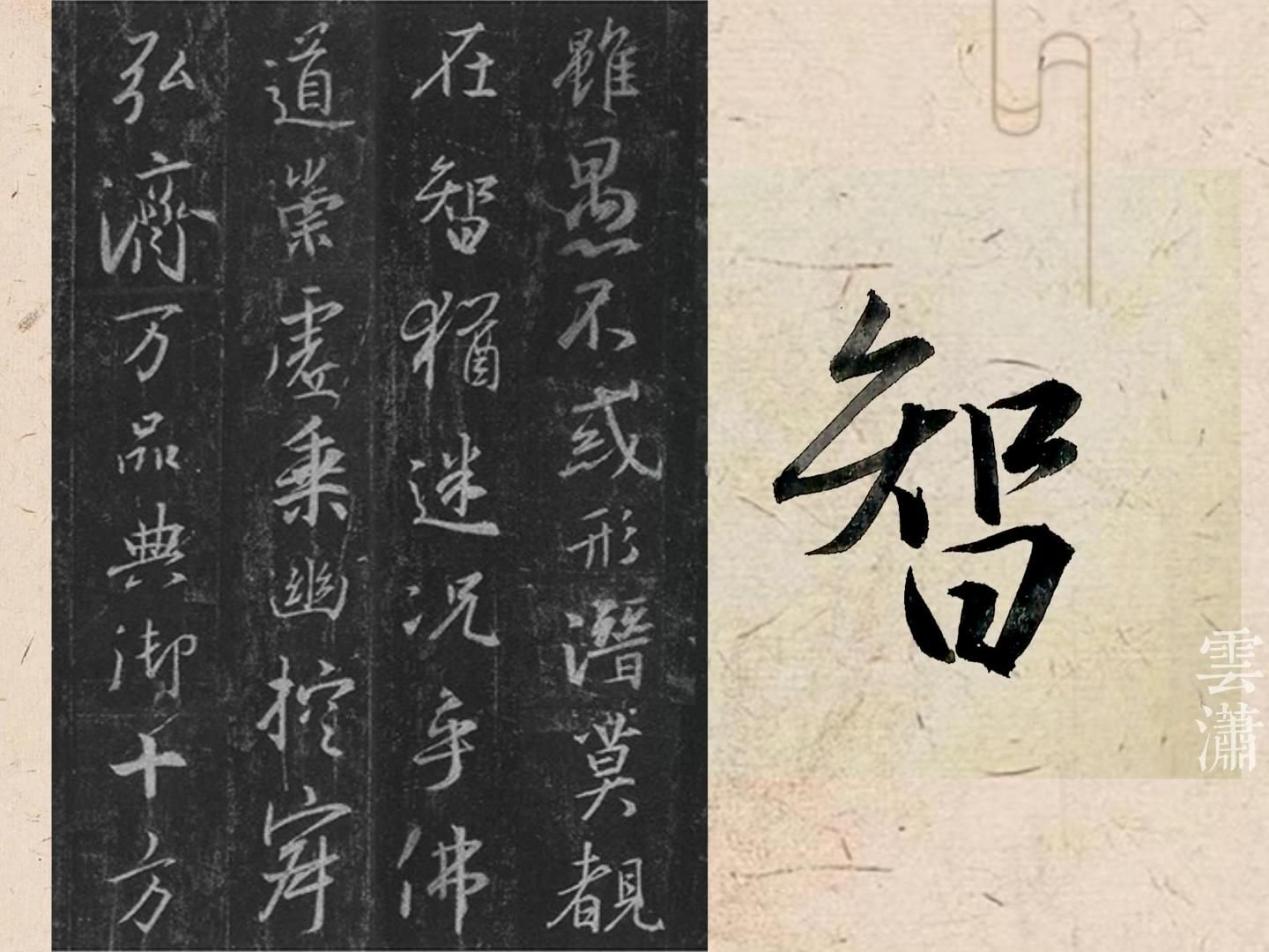 雖愚不惑形潛莫覩
在智猶迷況乎佛
道崇虛乘幽控寂
弘濟万品典御十方
智
雲瀟